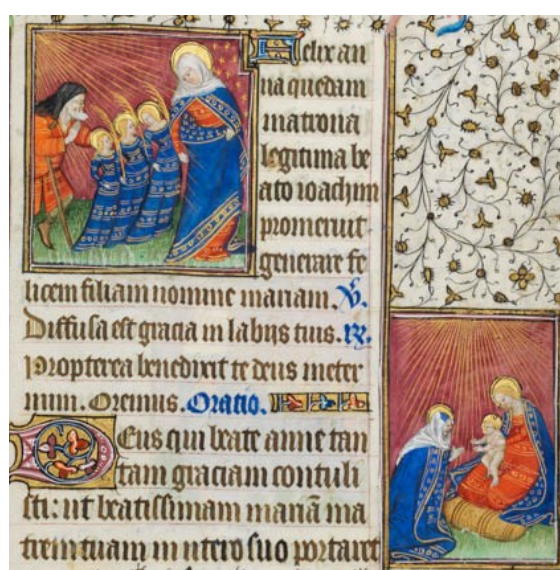 Felix an
na quedam
matrona
legitima be
ato ioachim
promeruit
generare fe
licem filiam nomine mariam. V.
Diffusa est gracia in labijs tuis. R.
Propterea benedixit te deus in eter
num. Oremus. Oratio.
Deus qui beate anne tan
tam graciam contuli
sti: ut beatissimam mariā ma
trem tuam in utero suo portaret